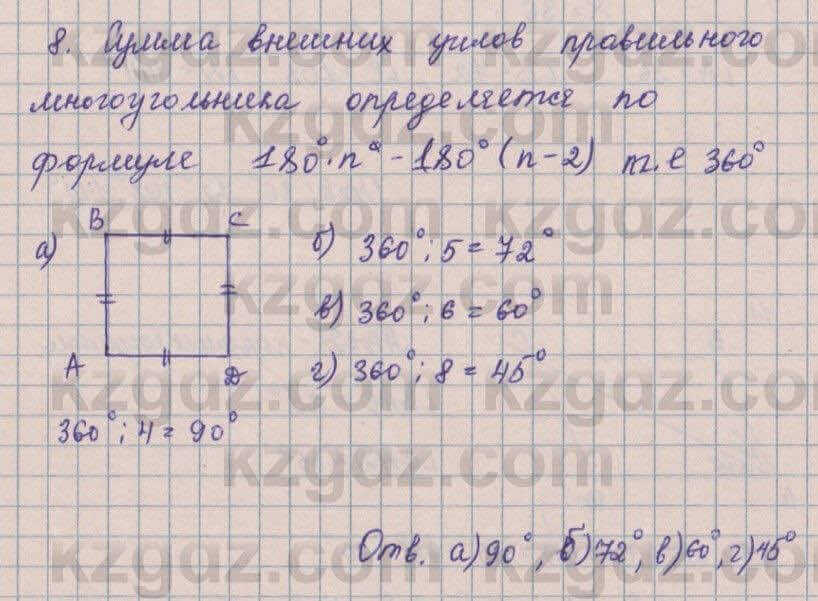 8. Сумма внешних углов правильного
многоугольника определяется по
формуле 180°·n° - 180° (n-2) т.е 360°
B C
а)
A D
360° : 4 = 90°
б) 360° : 5 = 72°
в) 360° : 6 = 60°
г) 360° : 8 = 45°
Отв. а) 90°, б) 72°, в) 60°, г) 45°
kzgdz.com